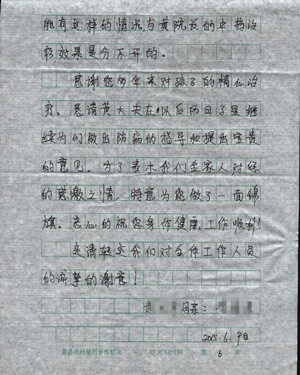 能有这样的情况与黄院长的中药治
疗效果是分不开的。
感谢您多年来对孩子的精心治
疗。恳请黄大夫在以后的日子里继
续为们做出防病的指导和提出宝贵
的意见。为了表示我们全家人对您
的感激之情,特意为您做了一面锦
旗。衷心的祝您身体健康,工作顺利!
并请转达我们对全体工作人员
的深挚的谢意!
母亲:
2015.6.9日
第 6 页